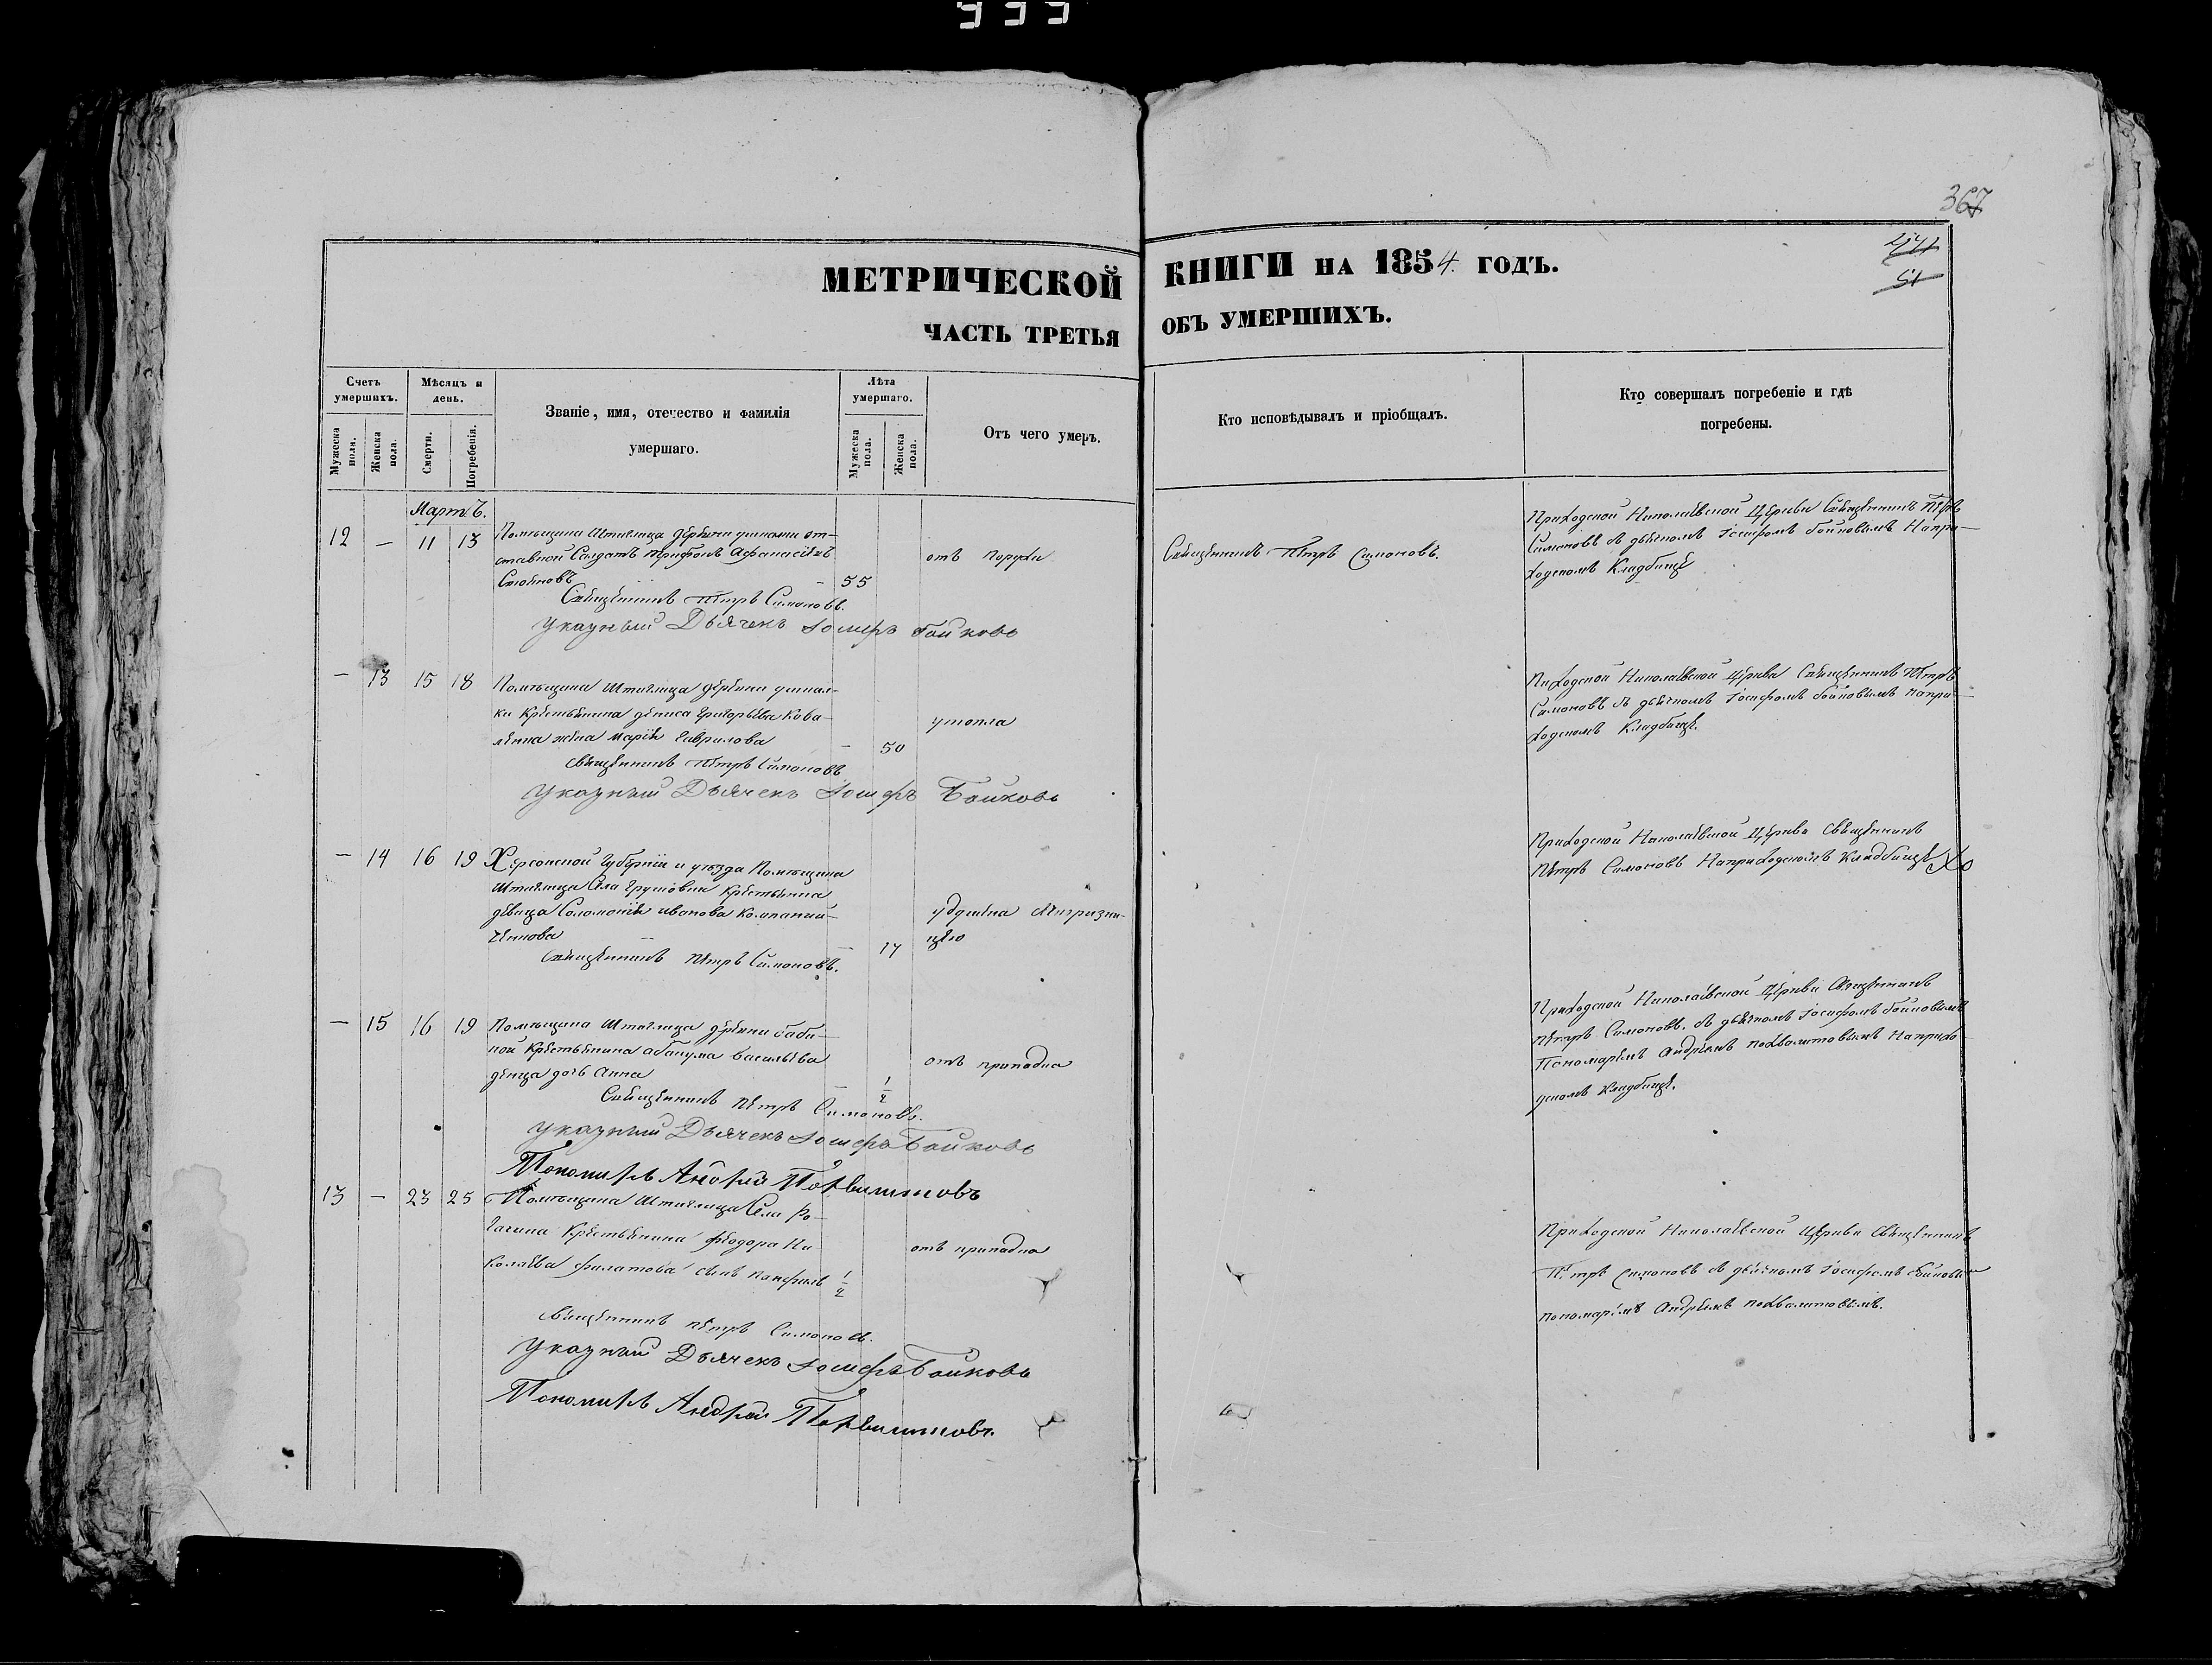 999
367
МЕТРИЧЕСКОЙ КНИГИ НА 1854. ГОДЪ.
ЧАСТЬ ТРЕТЬЯ ОБЪ УМЕРШИХЪ.
51
Счетъ умершихъ.
Мужеска пола.
Женска пола.
Мѣсяцъ и день.
Смерти.
Погребенія.
Званіе, имя, отечество и фамилія
умершаго.
Лѣта умершаго.
Мужеска пола.
Женска пола.
Отъ чего умеръ.
Кто исповѣдывалъ и пріобщалъ.
Кто совершалъ погребеніе и гдѣ
погребены.
Мартъ.
12 — 11 13
Помѣщика Штиглица деревни от-
ставной Солдатъ Афанасіевъ
55
Священникъ Петръ Симоновъ.
Указный Дьячекъ Іосифъ Бойковъ
Священникъ Петръ Симоновъ.
Приходской Николаевской Церкви Священникъ Петръ
Симоновъ съ дьячкомъ Іосифомъ Бойковымъ На при-
ходскомъ Кладбищѣ
— 13 15 18
Помѣщика Штиглица деревни
ки Крестьянина Дениса Григорьева Кова-
ленка жена Марія Гаврилова
— 50
утопла
Священникъ Петръ Симоновъ
Указный Дьячекъ Іосифъ Бойковъ
Пиходской Николаевской Церкви Священникъ Петръ
Симоновъ съ дьячкомъ Іосифомъ Бойковымъ на при-
ходскомъ Кладбищѣ.
— 14 16 19
Херсонской Губерніи и уѣзда Помѣщика
Штиглица Села Грушовки Крестьянка
девица Соломонія Иванова
— 17
Священникъ Петръ Симоновъ.
Приходской Николаевской Церкви Священникъ
Петръ Симоновъ На приходскомъ Кладбищѣ
— 15 16 19
Помѣщика Штиглица деревни Баби-
ной Крестьянина Абакума Васильева
дочь Анна
— 1/2
отъ припадка
Священникъ Петръ Симоновъ.
Указный Дьячекъ Іосифъ Бойковъ
Пономарь Андрей Похвалитовъ
Приходской Николаевской Церкви Священникъ
Петръ Симоновъ. съ дьячкомъ Іосифомъ Бойковымъ
Пономаремъ Андреемъ Похвалитовымъ На прихо-
дскомъ Кладбищѣ.
13 — 23 25
Помѣщика Штиглица Села Ро-
гачика Крестьянина Феодора Ни-
колаева Филатова сынъ Панфилъ
1/2
отъ припадка
Священникъ Петръ Симоновъ.
Указный Дьячекъ Іосифъ Бойковъ
Пономарь Андрей Похвалитовъ.
Приходской Николаевской Церкви Священникъ
Петръ Симоновъ съ дьячкомъ Іосифомъ Бойковым
пономаремъ Андреемъ Похвалитовымъ.